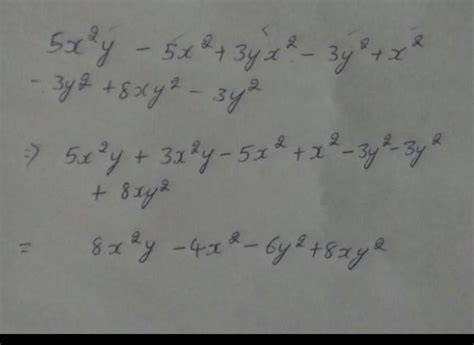 5x²y - 5x² + 3yx² - 3y² + x²
- 3y² + 8xy² - 3y²
⇒ 5x²y + 3x²y - 5x² + x² - 3y² - 3y²
+ 8xy²
= 8x²y - 4x² - 6y² + 8xy²